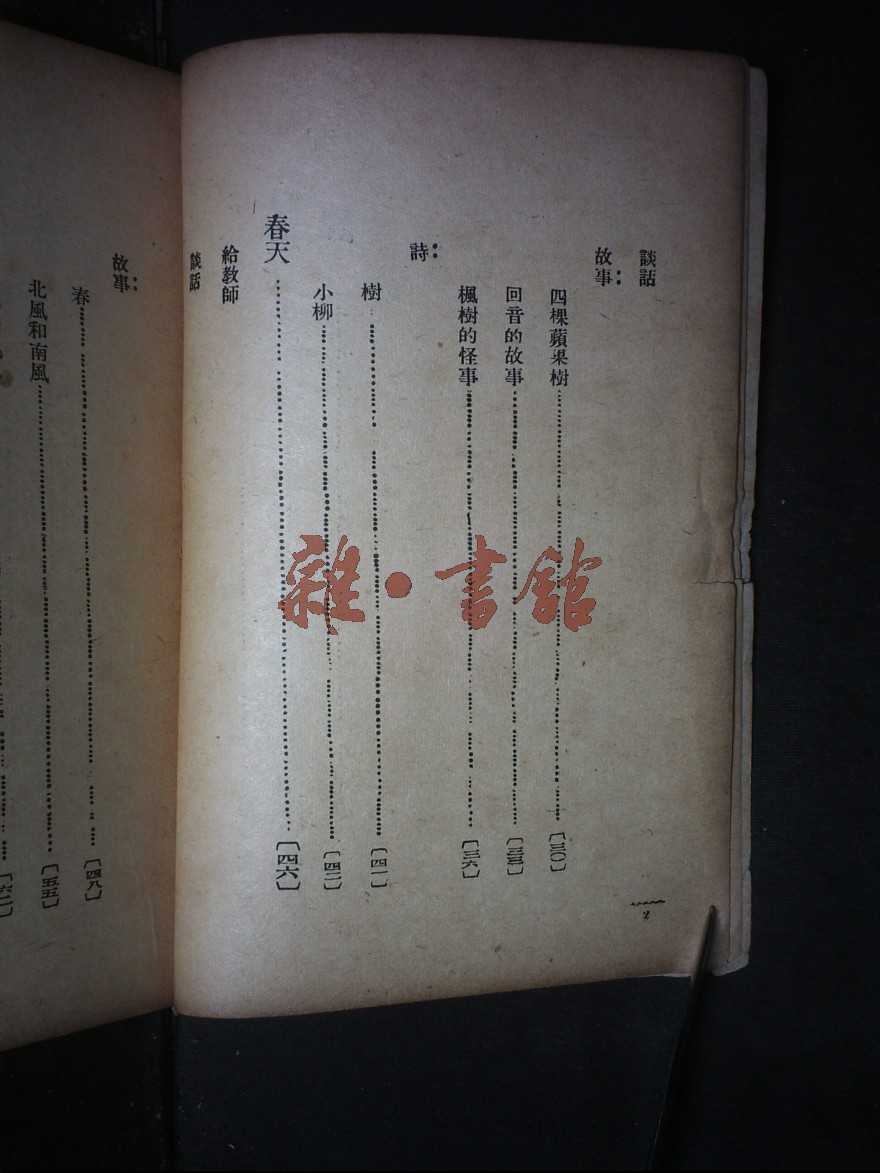 談話
故事：
四棵蘋果樹……〔三〇〕
回音的故事……〔三三〕
楓樹的怪事……〔三六〕
詩：
樹……〔四一〕
小柳……〔四二〕
春天……〔四六〕
給教師
談話
故事：
春……〔四八〕
北風和南風……〔五五〕
2
雜·書館